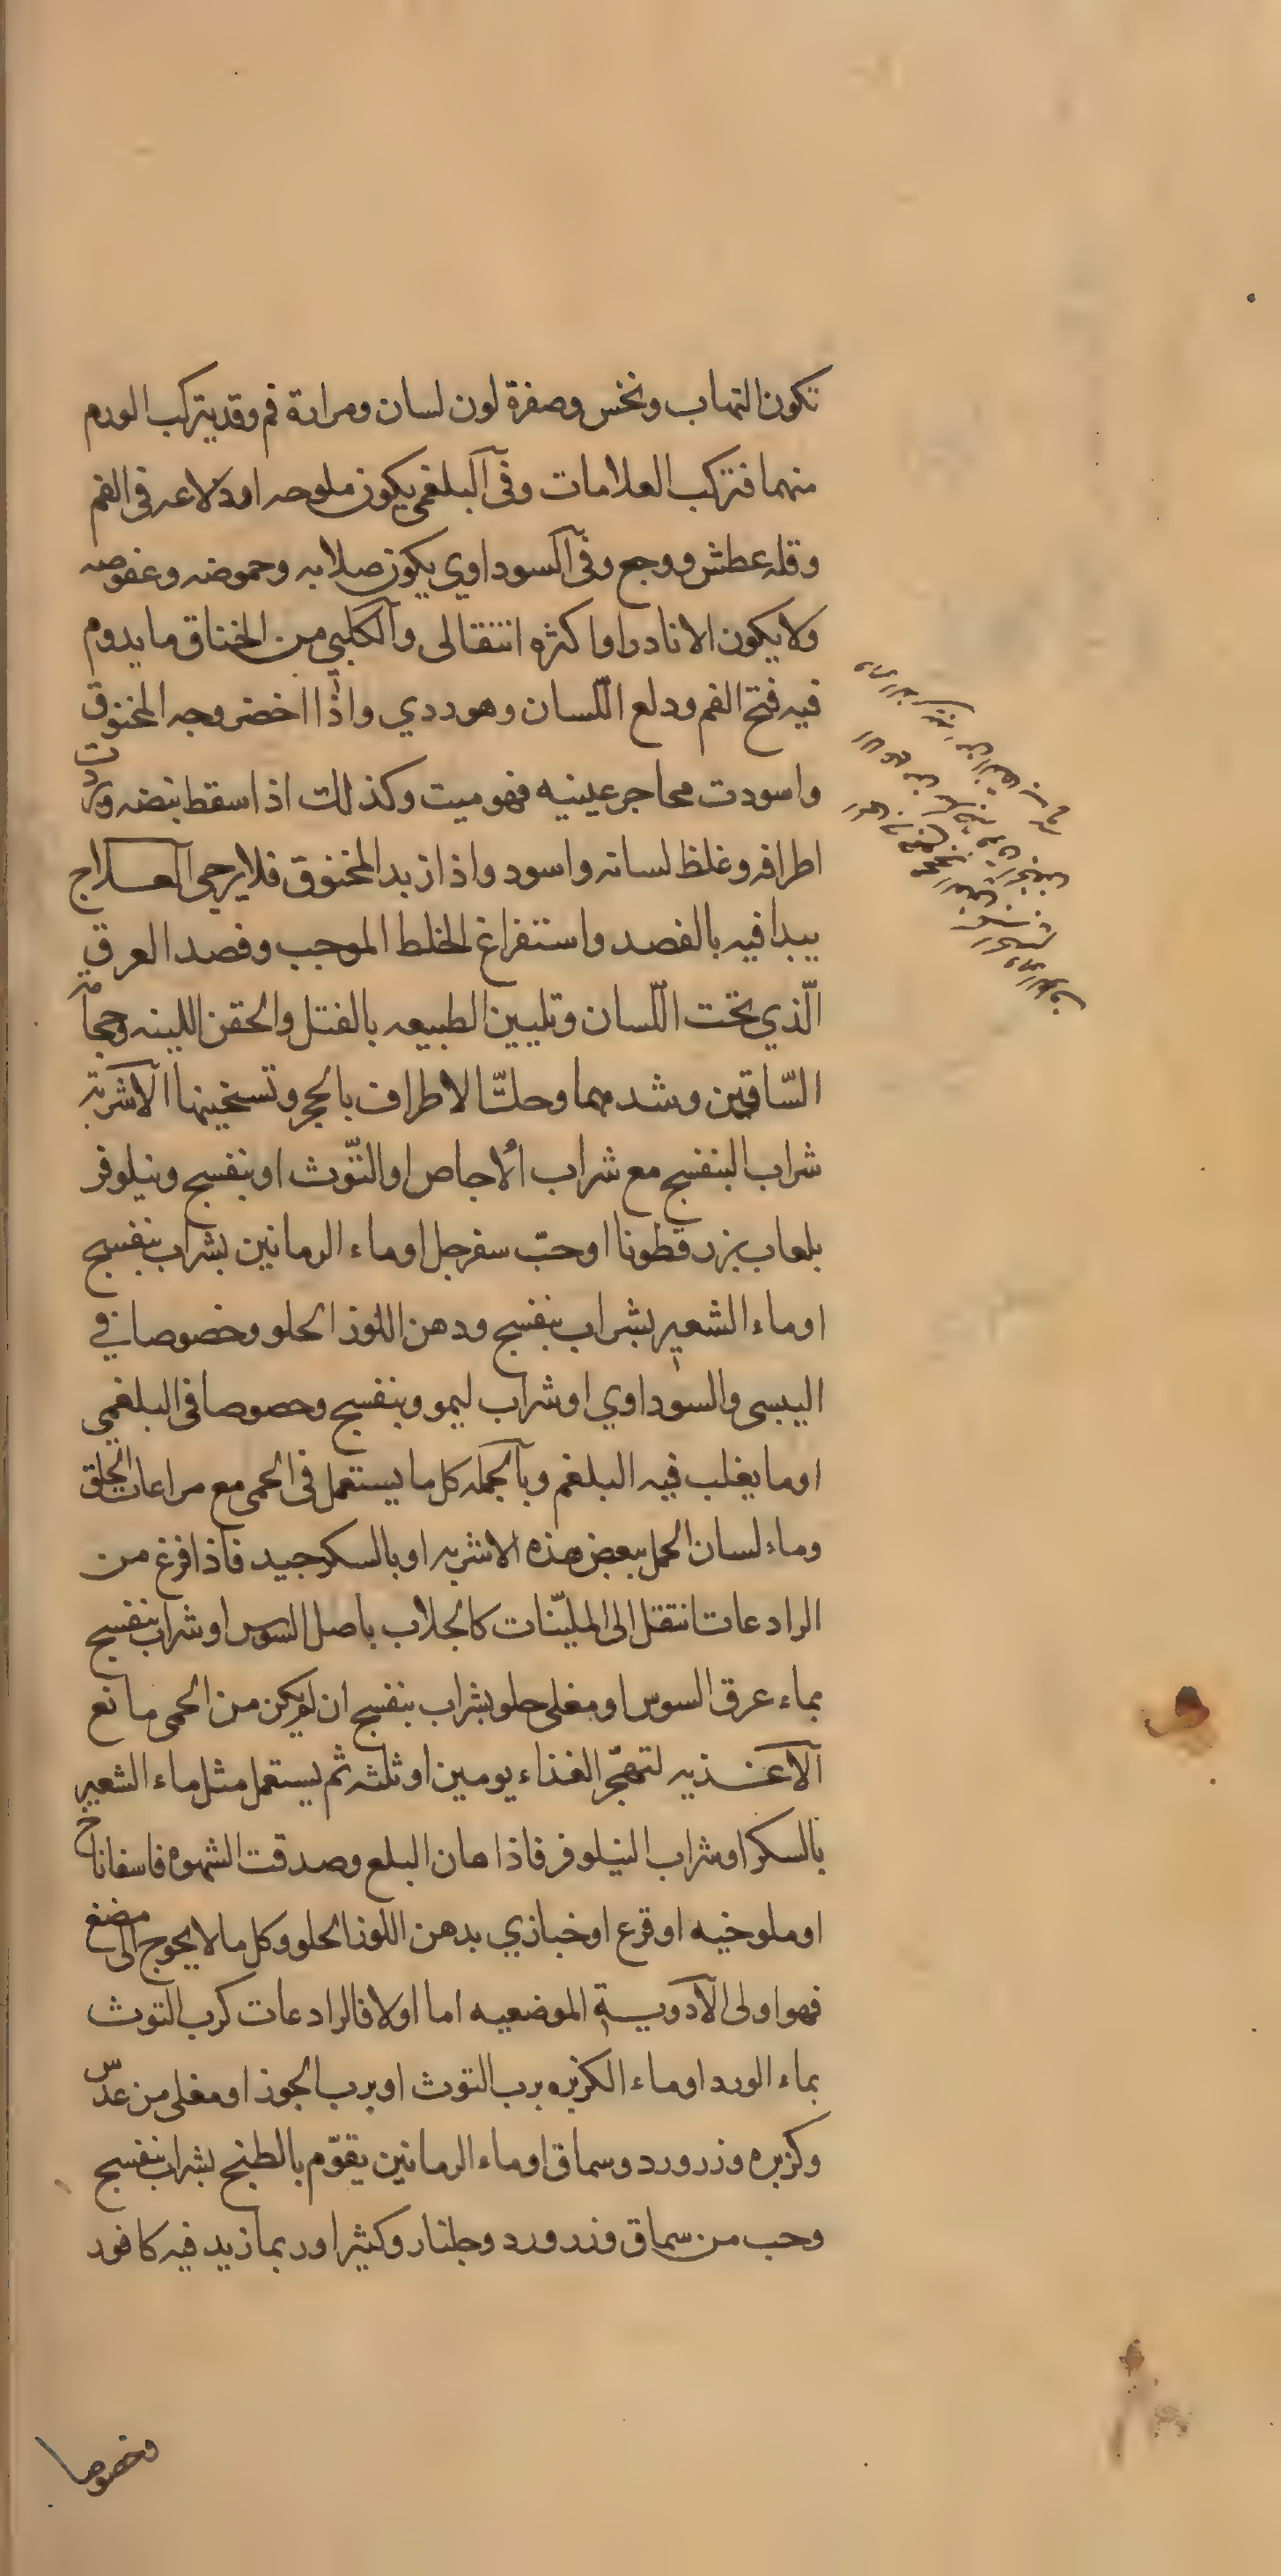 تكون التهاب ونخس وصفرة لون لسان ومرارة فم وقد يتركب الورم
منهما فتركب العلامات وفى البلغمي يكون ملوحه او دلاعه فى الفم
وقله عطش ووجع وفى السوداوي يكون صلابه وحموضه وعفوصه
ولا يكون الا نادرا واكثره انتقالى والكلبي من الخناق ما يدوم
فيه فتح الفم ودلع اللّسان وهو ردي واذا اخضر وجه المخنوق
واسودت محاجر عينيه فهو ميت وكذلك اذا سقط نبضه وبردت
اطرافه وغلظ لسانه واسود واذا ازبد المخنوق فلا يرجى العلاج
يبدا فيه بالفصد واستفراغ الخلط الموجب وفصد العرق
الّذي تحت اللّسان وتليين الطبيعه بالفتل والحقن اللينه وحجامة
السّاقين وشدهما وحكّ الاطراف بالحجر وتسخينها الاشربة
شراب البنفسج مع شراب الاجاص او التّوث او بنفسج ونيلوفر
بلعاب بزر قطونا او حبّ سفرجل او ماء الرمانين بشراب بنفسج
او ماء الشعير بشراب بنفسج ودهن اللوز الحلو وخصوصا في
اليبسى والسوداوي او شراب ليمو وبنفسج وخصوصا فى البلغمي
او ما يغلب فيه البلغم وبالجمله كل ما يستعمل فى الحمى مع مراعات الحلق
وماء لسان الحمل ببعض هذه الاشربه او بالسكر جيد فاذا فرغ من
الرادعات انتقل الى المليّنات كالجلاب باصل السوس او شراب بنفسج
بماء عرق السوس او مغلى حلو بشراب بنفسج ان لم يكن من الحمى مانع
الاغذيه لتهجّر الغذاء يومين او ثلثه ثم يستعمل مثل ماء الشعير
بالسكر او شراب النيلوفر فاذا هان البلع وصدقت الشهوه فاسفاناخ
او ملوخيه او قرع او خبازي بدهن اللوز الحلو وكل ما لا يحوج الى مضغ
فهو اولى الادوية الموضعيه اما اولا فالرادعات كرب التوث
بماء الورد او ماء الكزبره برب التوث او برب الجوز او مغلى من عدس
وكزبره وزر ورد وسماق او ماء الرمانين يقوّم بالطبخ بشراب بنفسج
وحب من سماق وزر ورد وجلنار وكثيرا وربما زيد فيه كافور
وخصوصا